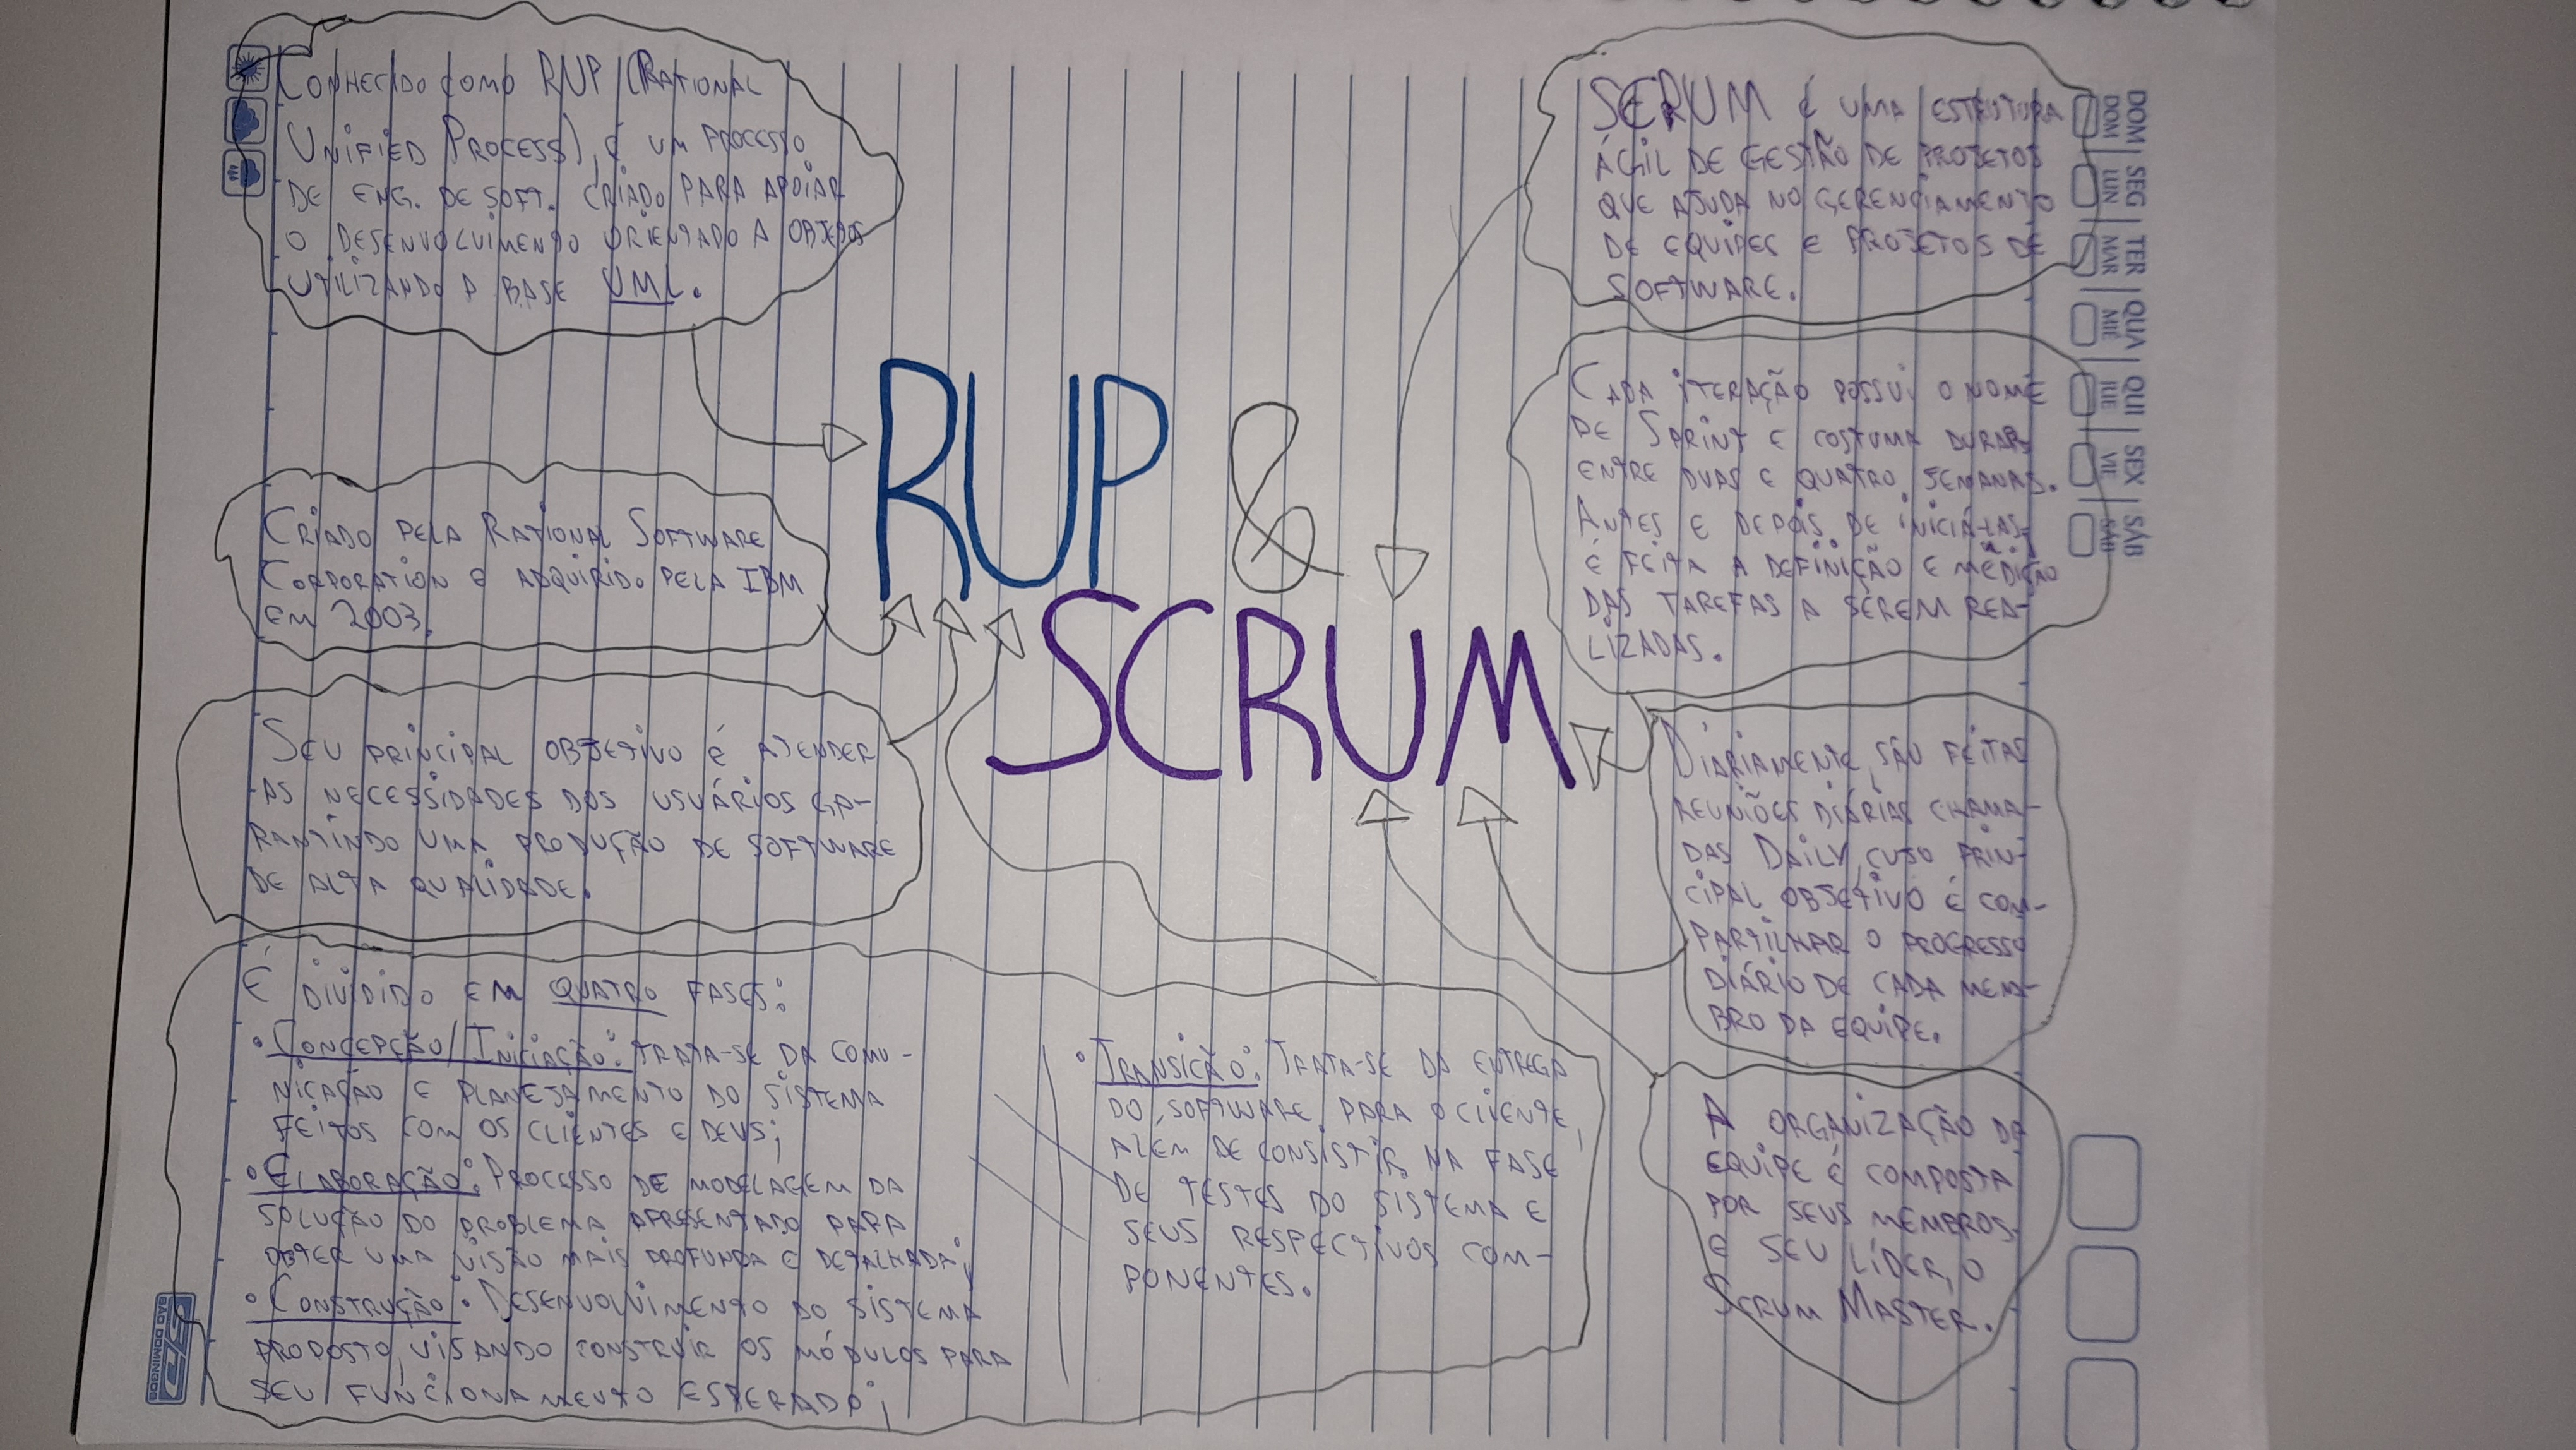 Conhecido como RUP (Rational
Unified Process), é um processo
de eng. de soft. criado para apoiar
o desenvolvimento orientado a objetos
utilizando a base UML.
Criado pela Rational Software
Corporation e adquirido pela IBM
em 2003.
Seu principal objetivo é atender
as necessidades dos usuários ga-
rantindo uma produção de software
de alta qualidade.
É dividido em quatro fases:
• Concepção/Iniciação: trata-se da comu-
nicação e planejamento do sistema
feitos com os clientes e devs;
• Elaboração: Processo de modelagem da
solução do problema apresentado para
obter uma visão mais profunda e detalhada;
• Construção: Desenvolvimento do sistema
proposto, visando construir os módulos para
seu funcionamento esperado;
• Transição: Trata-se da entrega
do software para o cliente,
além de consistir na fase
de testes do sistema e
seus respectivos com-
ponentes.
RUP &
SCRUM
SCRUM é uma estrutura
ágil de gestão de projetos
que ajuda no gerenciamento
de equipes e projetos de
software.
Cada iteração possui o nome
de Sprint e costuma durar
entre duas e quatro semanas.
Antes e depois de iniciá-las,
é feita a definição e medição
das tarefas a serem rea-
lizadas.
Diariamente são feitas
reuniões diárias chama-
das Daily, cujo prin-
cipal objetivo é com-
partilhar o progresso
diário de cada mem-
bro da equipe.
A organização da
equipe é composta
por seus membros
e seu líder, o
Scrum Master.
DOM SEG TER QUA QUI SEX SÁB
DOM LUN MAR MIÉ JUE VIE SÁB
SÃO DOMINGOS